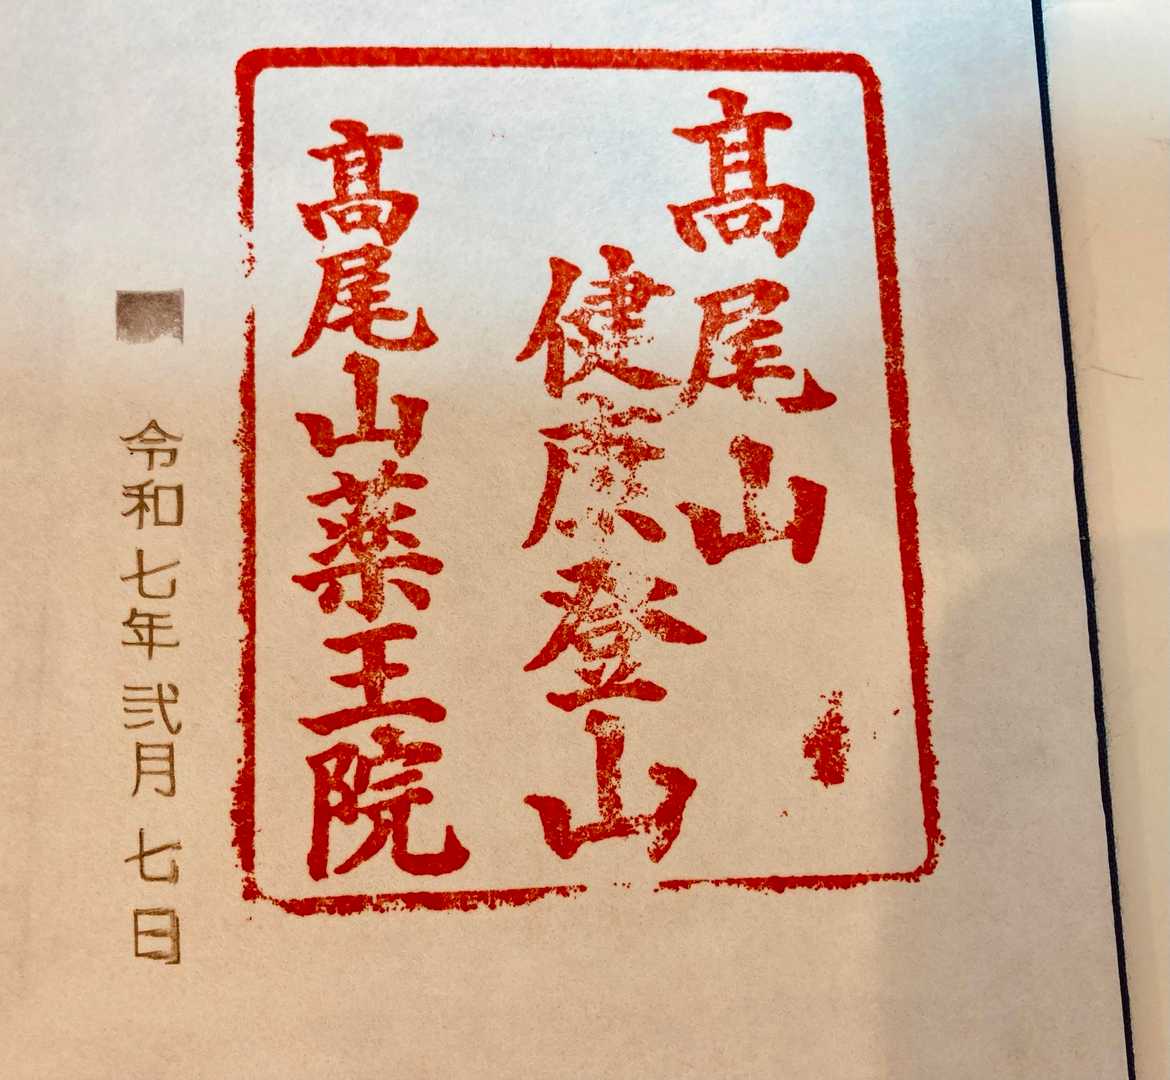 髙尾山
健康登山
髙尾山薬王院
令和七年弐月七日